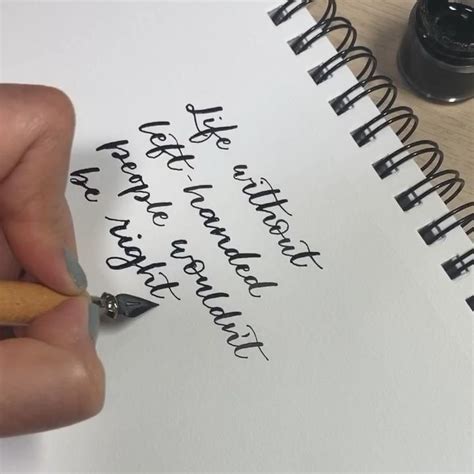 Life without
left-handed
people wouldn't
be right